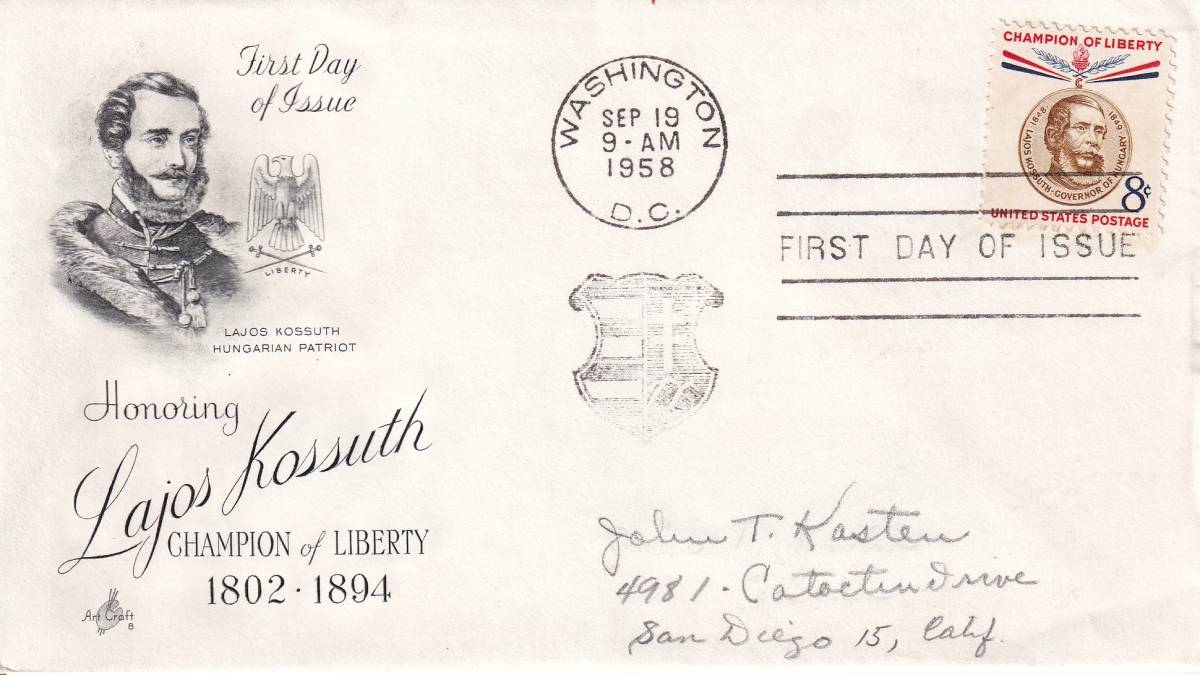 First Day
of Issue
LIBERTY
LAJOS KOSSUTH
HUNGARIAN PATRIOT
Honoring
Lajos Kossuth
CHAMPION of LIBERTY
1802 · 1894
Art Craft
8
WASHINGTON
SEP 19
9 - AM
1958
D.C.
CHAMPION OF LIBERTY
1848 · 1849
LAJOS KOSSUTH - GOVERNOR OF HUNGARY
8¢
UNITED STATES POSTAGE
FIRST DAY OF ISSUE
John T. Kasten
4981 - Catoctin Drive
San Diego 15, Calif.